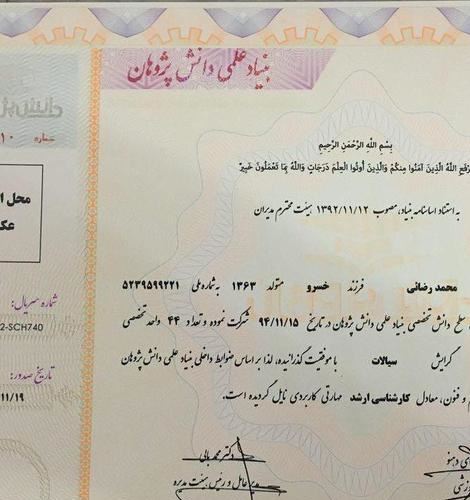 بنیاد علمی دانش پژوهان
شماره
محل ا
عک
بِسْمِ اللهِ الرَّحْمنِ الرَّحیمِ
رفَعِ اللهُ الَّذینَ آمَنُوا مِنکُمْ وَالَّذینَ أُوتُوا الْعِلْمَ دَرَجَاتٍ وَاللهُ بِمَا تَعْمَلُونَ خَبِیرٌ
به استناد اساسنامه بنیاد، مصوب ۱۳۹۲/۱۱/۱۲ هیئت محترم مدیران
محمد رضائی فرزند خسرو متولد ۱۳۶۳ به شماره ملی ۵۲۳۹۵۹۹۲۲۱
سطح دانش تخصصی بنیاد علمی دانش پژوهان در تاریخ ۹۴/۱۱/۱۵ شرکت نموده و تعداد ۴۴ واحد تخصصی
گرایش سیالات با موفقیت گذرانیده، لذا بر اساس ضوابط داخلی بنیاد علمی دانش پژوهان
و فنون، معادل کارشناسی ارشد مهارتی کاربردی نایل گردیده است.
شماره سریال:
2-SCH740
تاریخ صدور:
۱۱/۱۹
دکتر محمد بالی
مدیر عامل و رئیس هیئت مدیره